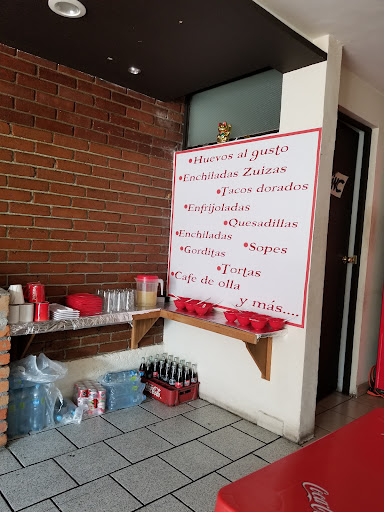 Huevos al gusto
Enchiladas Zuizas
Tacos dorados
Enfrijoladas
Quesadillas
Enchiladas
Gorditas
Sopes
Tortas
Cafe de olla
y más....
WC
Coca-Cola